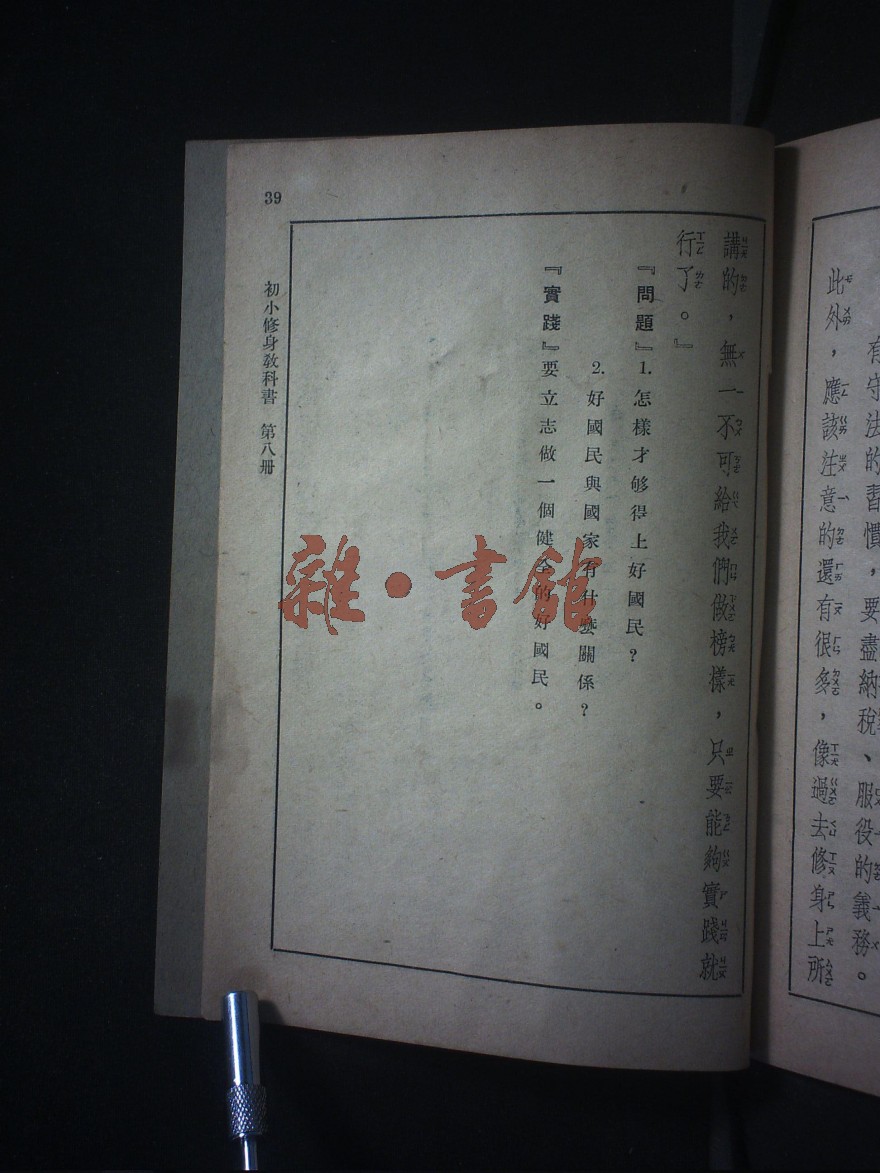 有守法的習慣，要盡納稅、服役的義務。
此外，應該注意的還有很多，像過去修身上所
講的，無一不可給我們做榜樣，只要能夠實踐就
行了。』
『問題』1. 怎樣才够得上好國民？
2. 好國民與國家有什麼關係？
『實踐』要立志做一個健全的好國民。
初小修身教科書 第八冊
39
雜·書館